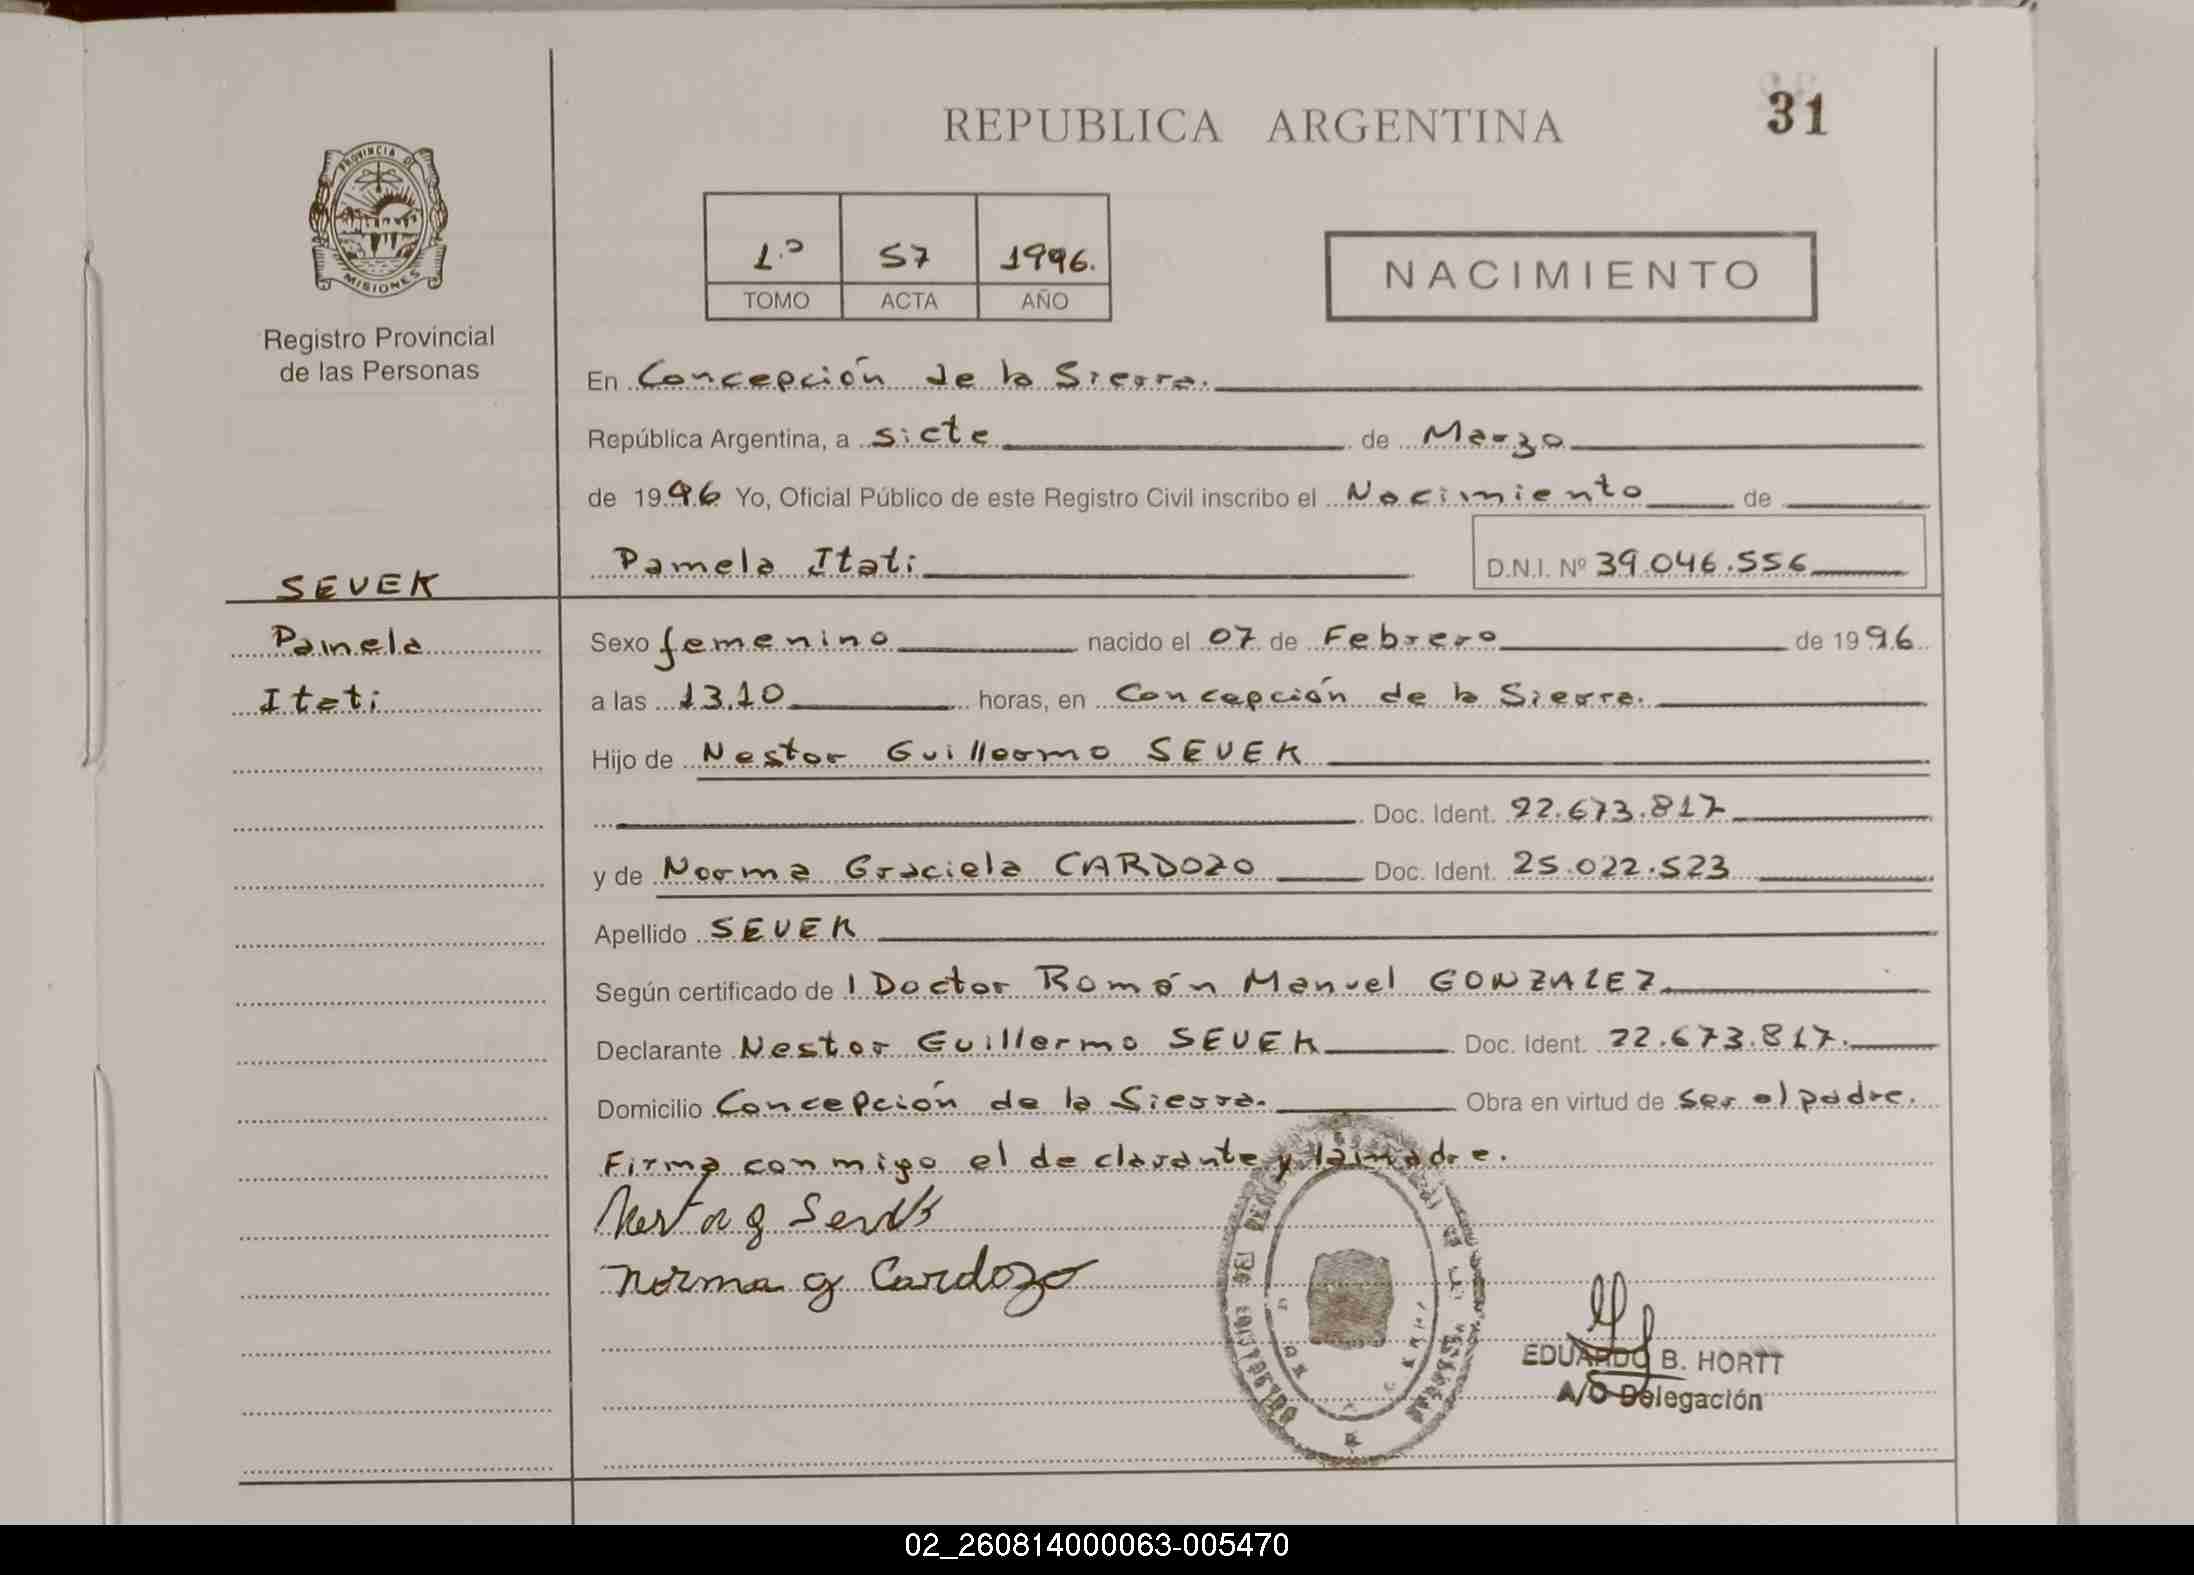 REPUBLICA ARGENTINA
31
PROVINCIA DE
MISIONES
Registro Provincial
de las Personas
1.º 57 1996.
TOMO ACTA AÑO
NACIMIENTO
En Concepción de la Sierra.
República Argentina, a siete de Marzo
de 1996 Yo, Oficial Público de este Registro Civil inscribo el Nacimiento de
Pamela Itati D.N.I. Nº 39.046.556
SEVEK
Pamela
Itati
Sexo femenino nacido el 07 de Febrero de 1996
a las 13.10 horas, en Concepción de la Sierra.
Hijo de Nestor Guillermo SEVEK
Doc. Ident. 22.673.817
y de Norma Graciela CARDOZO Doc. Ident. 25.022.523
Apellido SEVEK
Según certificado de l Doctor Román Manuel GONZALEZ
Declarante Nestor Guillermo SEVEK Doc. Ident. 22.673.817.
Domicilio Concepción de la Sierra. Obra en virtud de ser el padre.
Firma conmigo el declarante y la madre.
Nestor g Sevek
Norma g Cardozo
EDUARDO B. HORTT
A/C Delegación
02_260814000063-005470